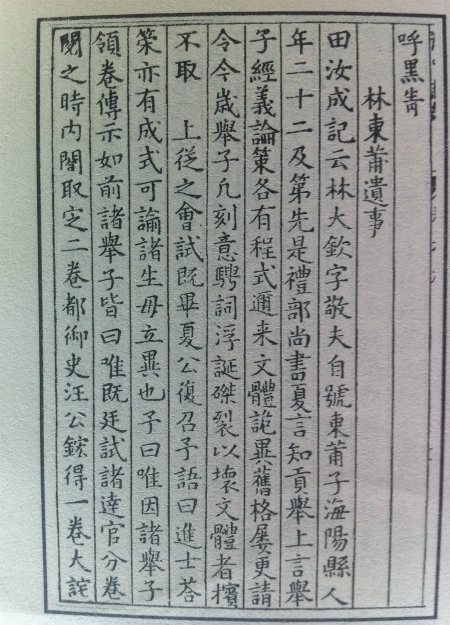 呼黑眚
林東莆遺事
田汝成記云林大欽字敬夫自號東莆子海陽縣人
年二十二及第先是禮部尚書夏言知貢舉上言舉
子經義論策各有程式邇来文體詭異舊格屡更請
令今歲舉子凢刻意騁詞浮誕磔裂以壞文體者擯
不取 上從之會試既畢夏公復召予語曰進士荅
策亦有成式可諭諸生毋立異也予曰唯因諸舉子
領卷傳示如前諸舉子皆曰唯既廷試諸達官分卷
閱之時内閣取定二卷都御史汪公鋐得一卷大詫